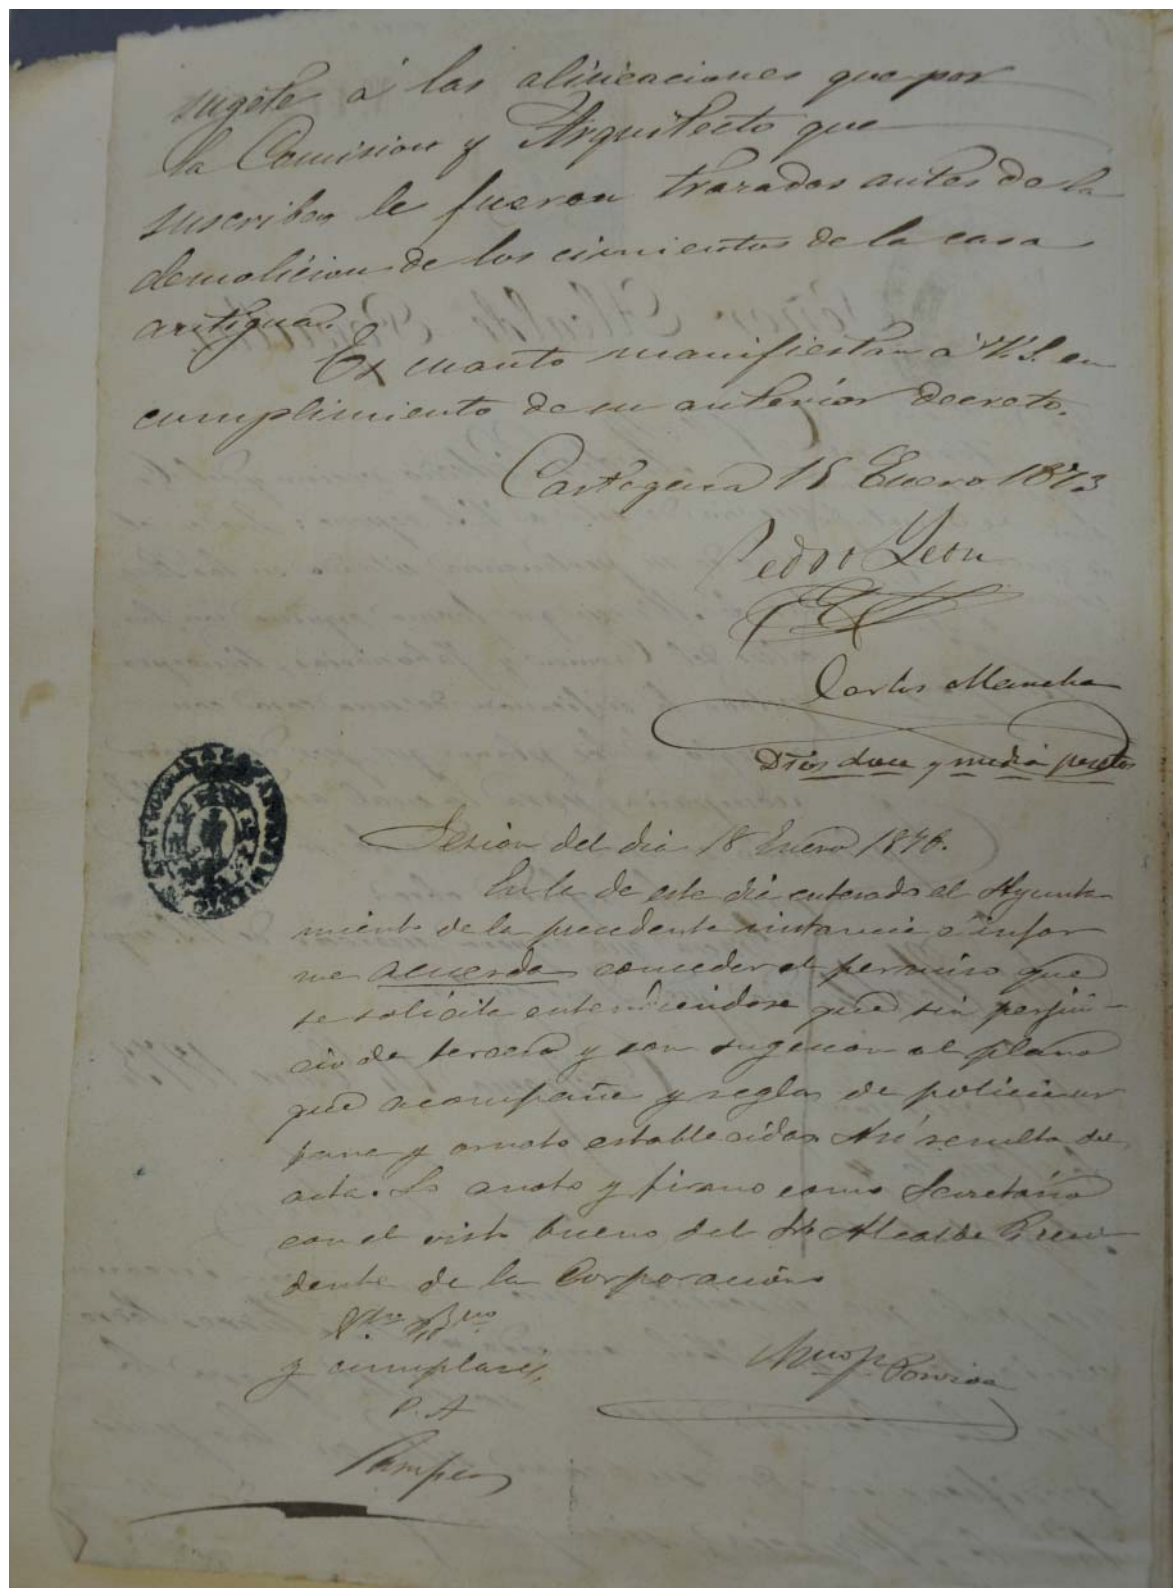 sugete á las alineaciones que por
la Comision y Arquitecto que
suscriben le fueron trazadas antes de la
demolicion de los cimientos de la casa
antigua.
Es cuanto manifiestan á V.S. en
cumplimiento de su anterior decreto.
Cartagena 15 Enero 1873
Pedro Leon
Carlos Mancha
Dros doce y media pesetas
Sesion del dia 18 Enero 1873.
En la de este dia enterado el Ayunta
miento de la precedente instancia é infor
me acuerda conceder el permiso que
se solicita entendiendose que sin perjui-
cio de tercero y con sugecion al plano
que acompaña y reglas de policia ur
bana y ornato establecidas. Asi resulta del
acta. Lo anoto y firmo como Secretario
con el visto bueno del Sr. Alcalde Presi
dente de la Corporacion
Vto. Bno
y cumplase,
P. A